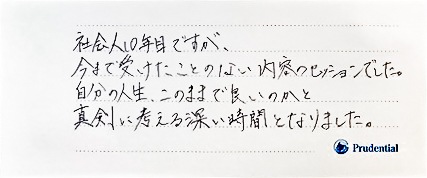 社会人10年目ですが、
今まで受けたことのない内容のセッションでした。
自分の人生、このままで良いのかと
真剣に考える深い時間となりました。
Prudential